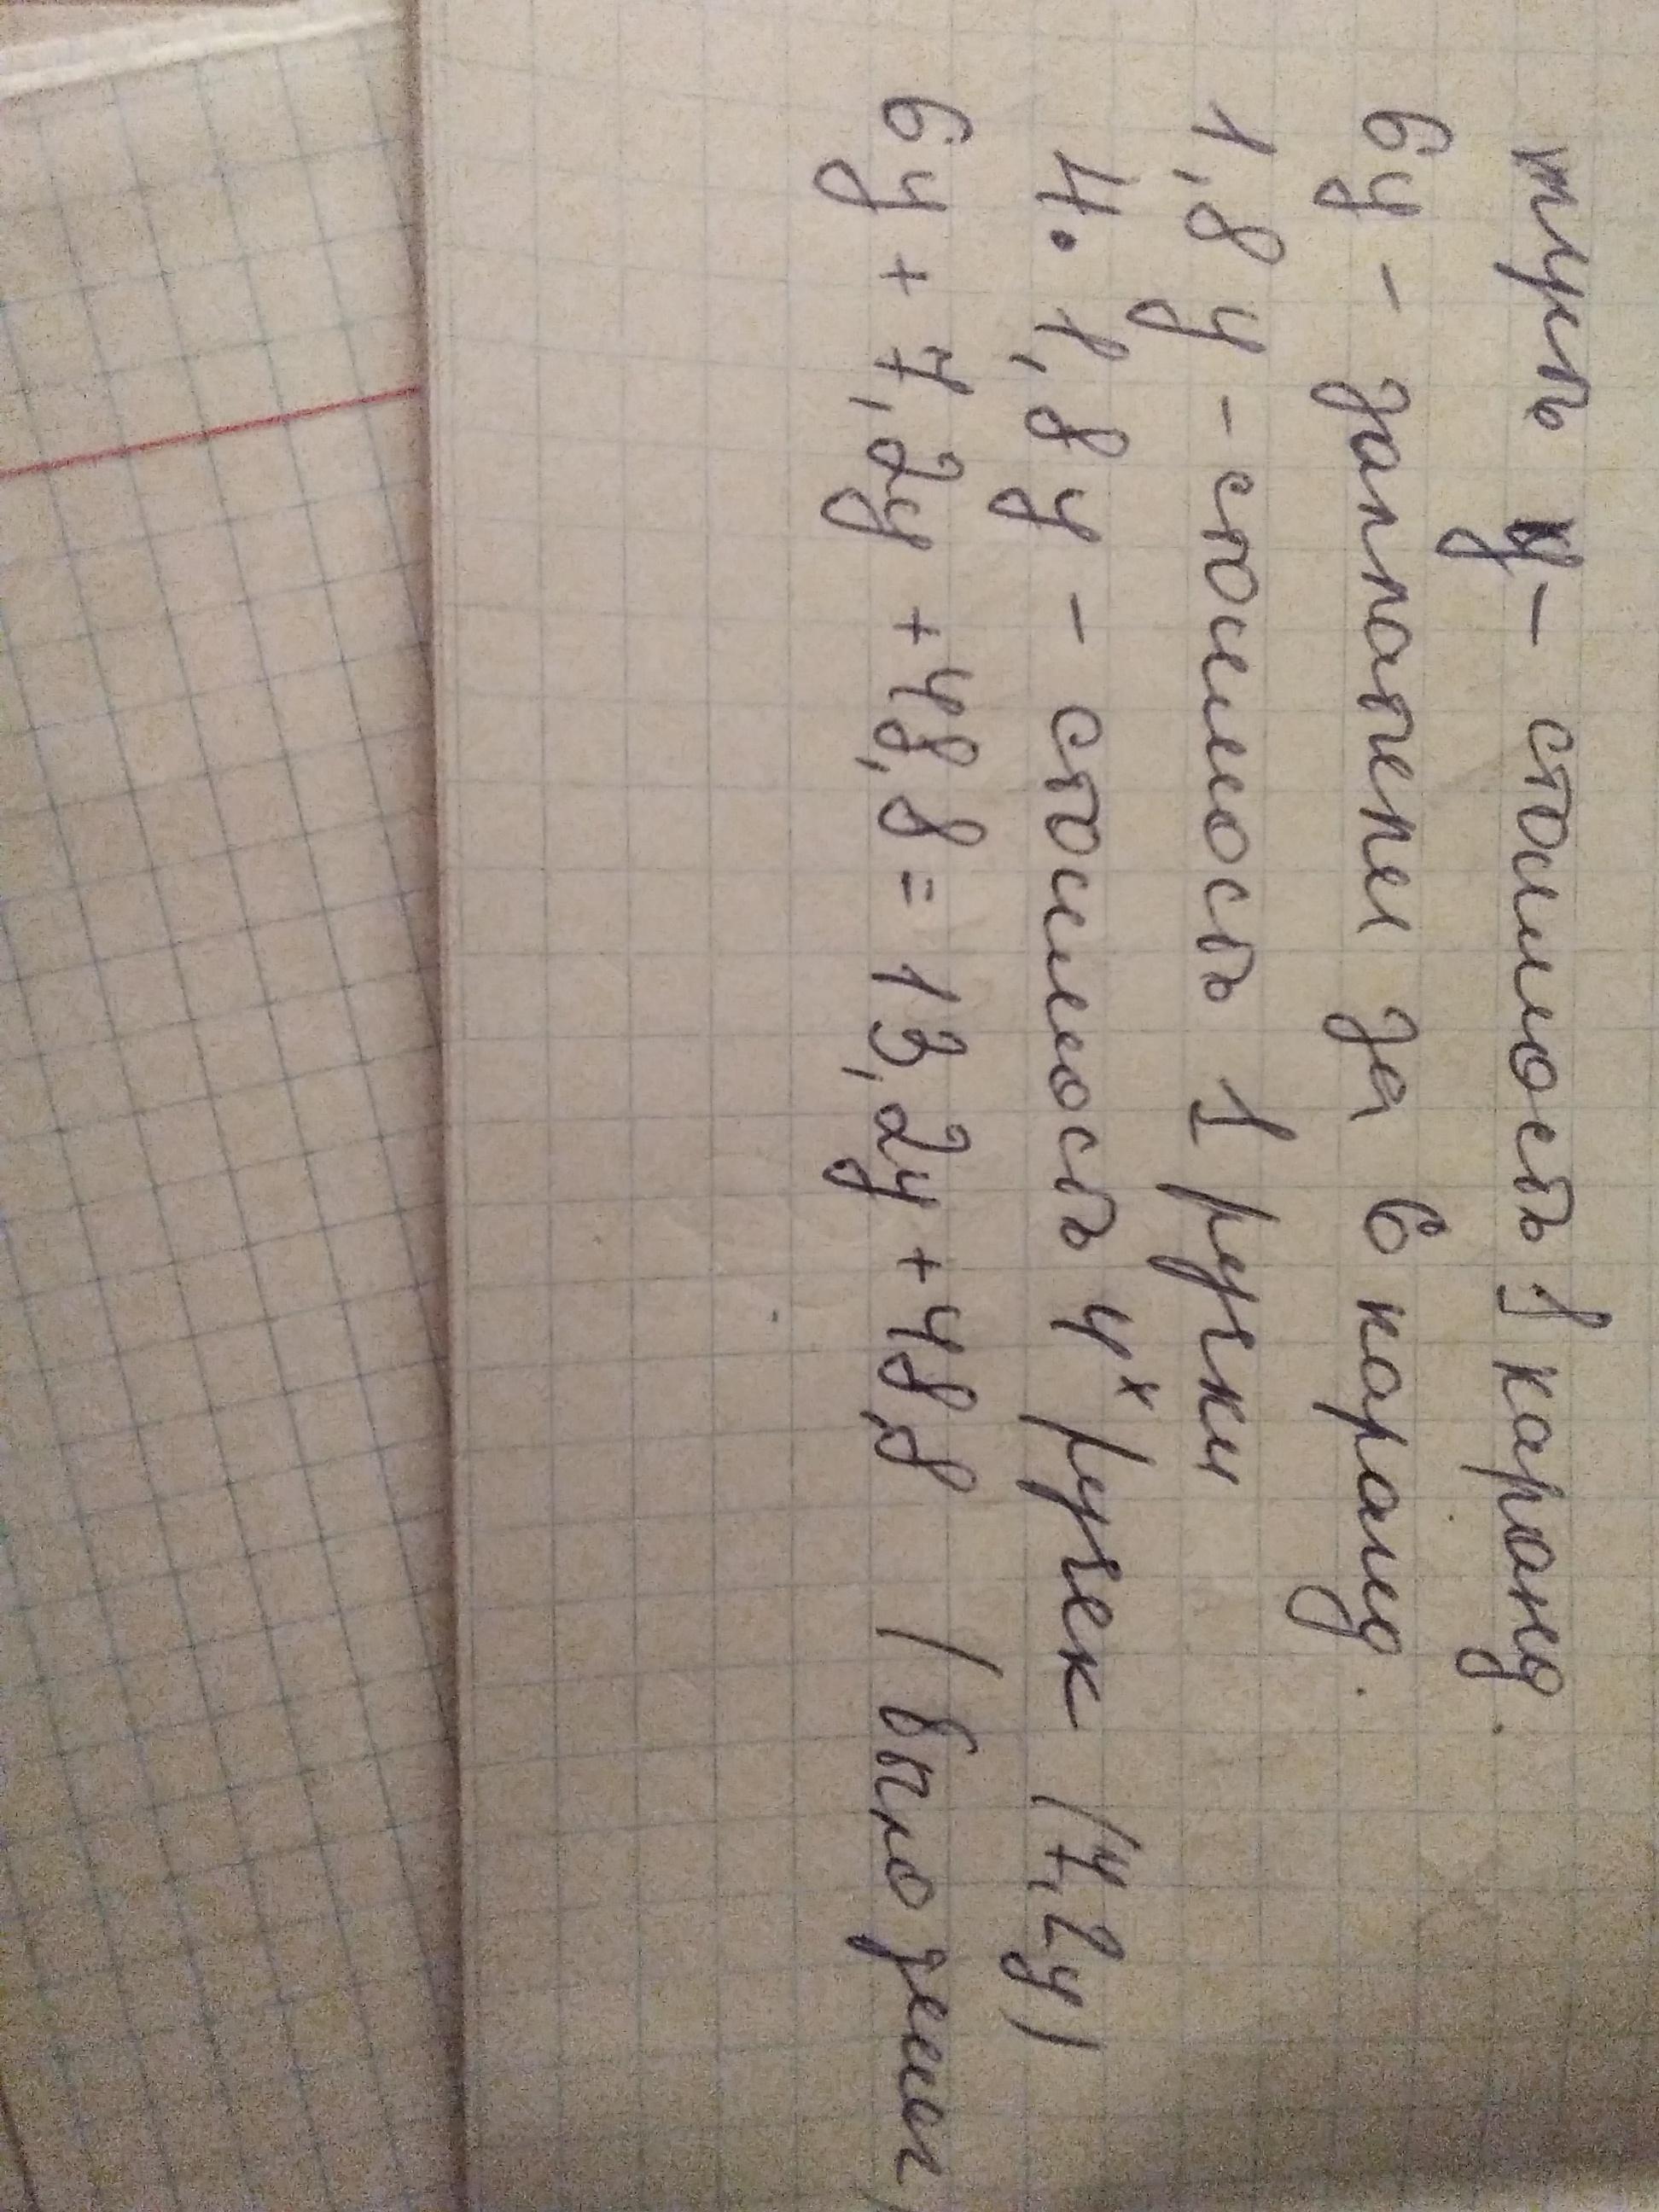 пусть y - стоимость 1 каранд.
6y - заплатили за 6 каранд.
1,8 y - стоимость 1 ручки
4 • 1,8 y - стоимость 4х ручек (7,2y)
6y + 7,2y + 48,8 = 13,2y + 48,8 (было денег)